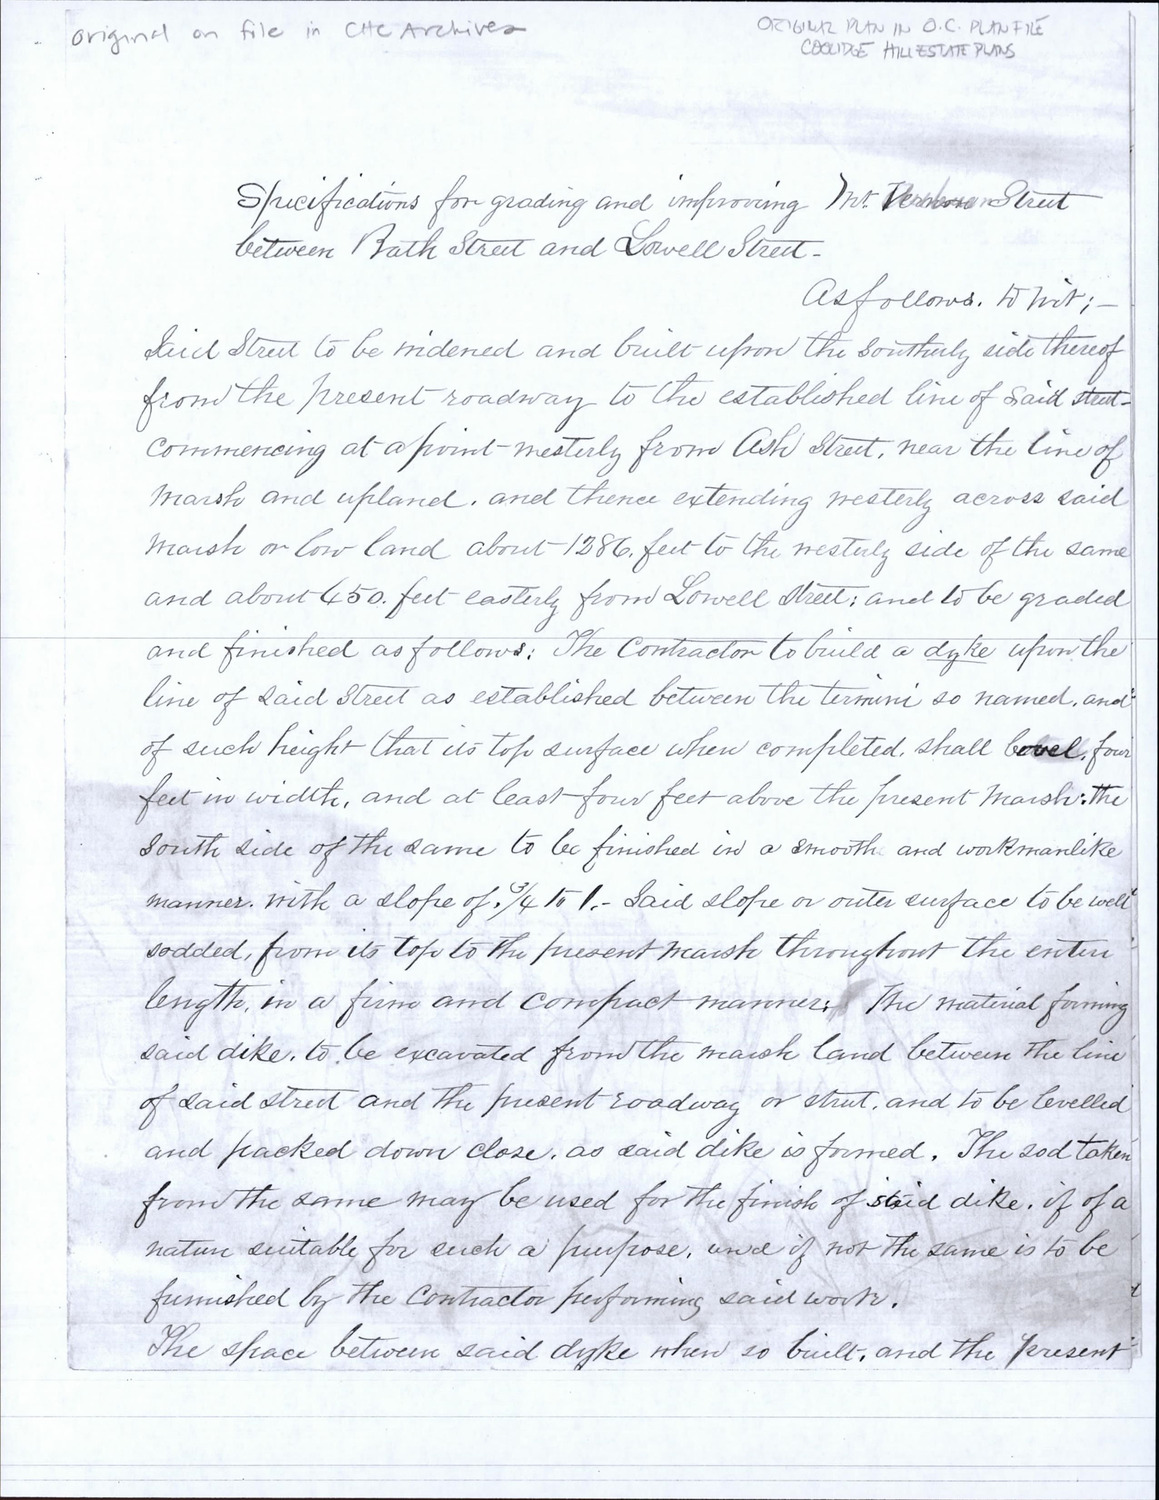 original on file in CHC Archives
ORIGINAL PLAN IN O.C. PLAN FILE
COOLIDGE HILL ESTATE PLANS
Specifications for grading and improving Mt. Vernon Street
between Bath Street and Lowell Street.
As follows. to wit;—
Said Street to be widened and built upon the Southerly side thereof
from the present roadway to the established line of said street-
commencing at a point westerly from Ash Street, near the line of
Marsh and upland, and thence extending westerly across said
Marsh or low land about 1286. feet to the westerly side of the same
and about 450. feet easterly from Lowell Street; and to be graded
and finished as follows: The Contractor to build a dyke upon the
line of said Street as established between the termini so named, and
of such height that its top surface when completed, shall be four
feet in width, and at least four feet above the present Marsh: the
south side of the same to be finished in a smooth and workmanlike
manner. with a slope of ¾ to 1.- Said slope or outer surface to be well
sodded, from its top to the present marsh throughout the entire
length, in a firm and compact manner; The material forming
said dike, to be excavated from the marsh land between the line
of said street and the present roadway or street, and to be levelled
and packed down close, as said dike is formed. The sod taken
from the same may be used for the finish of said dike, if of a
nature suitable for such a purpose, and if not the same is to be
furnished by the Contractor performing said work.
The space between said dyke when so built, and the present